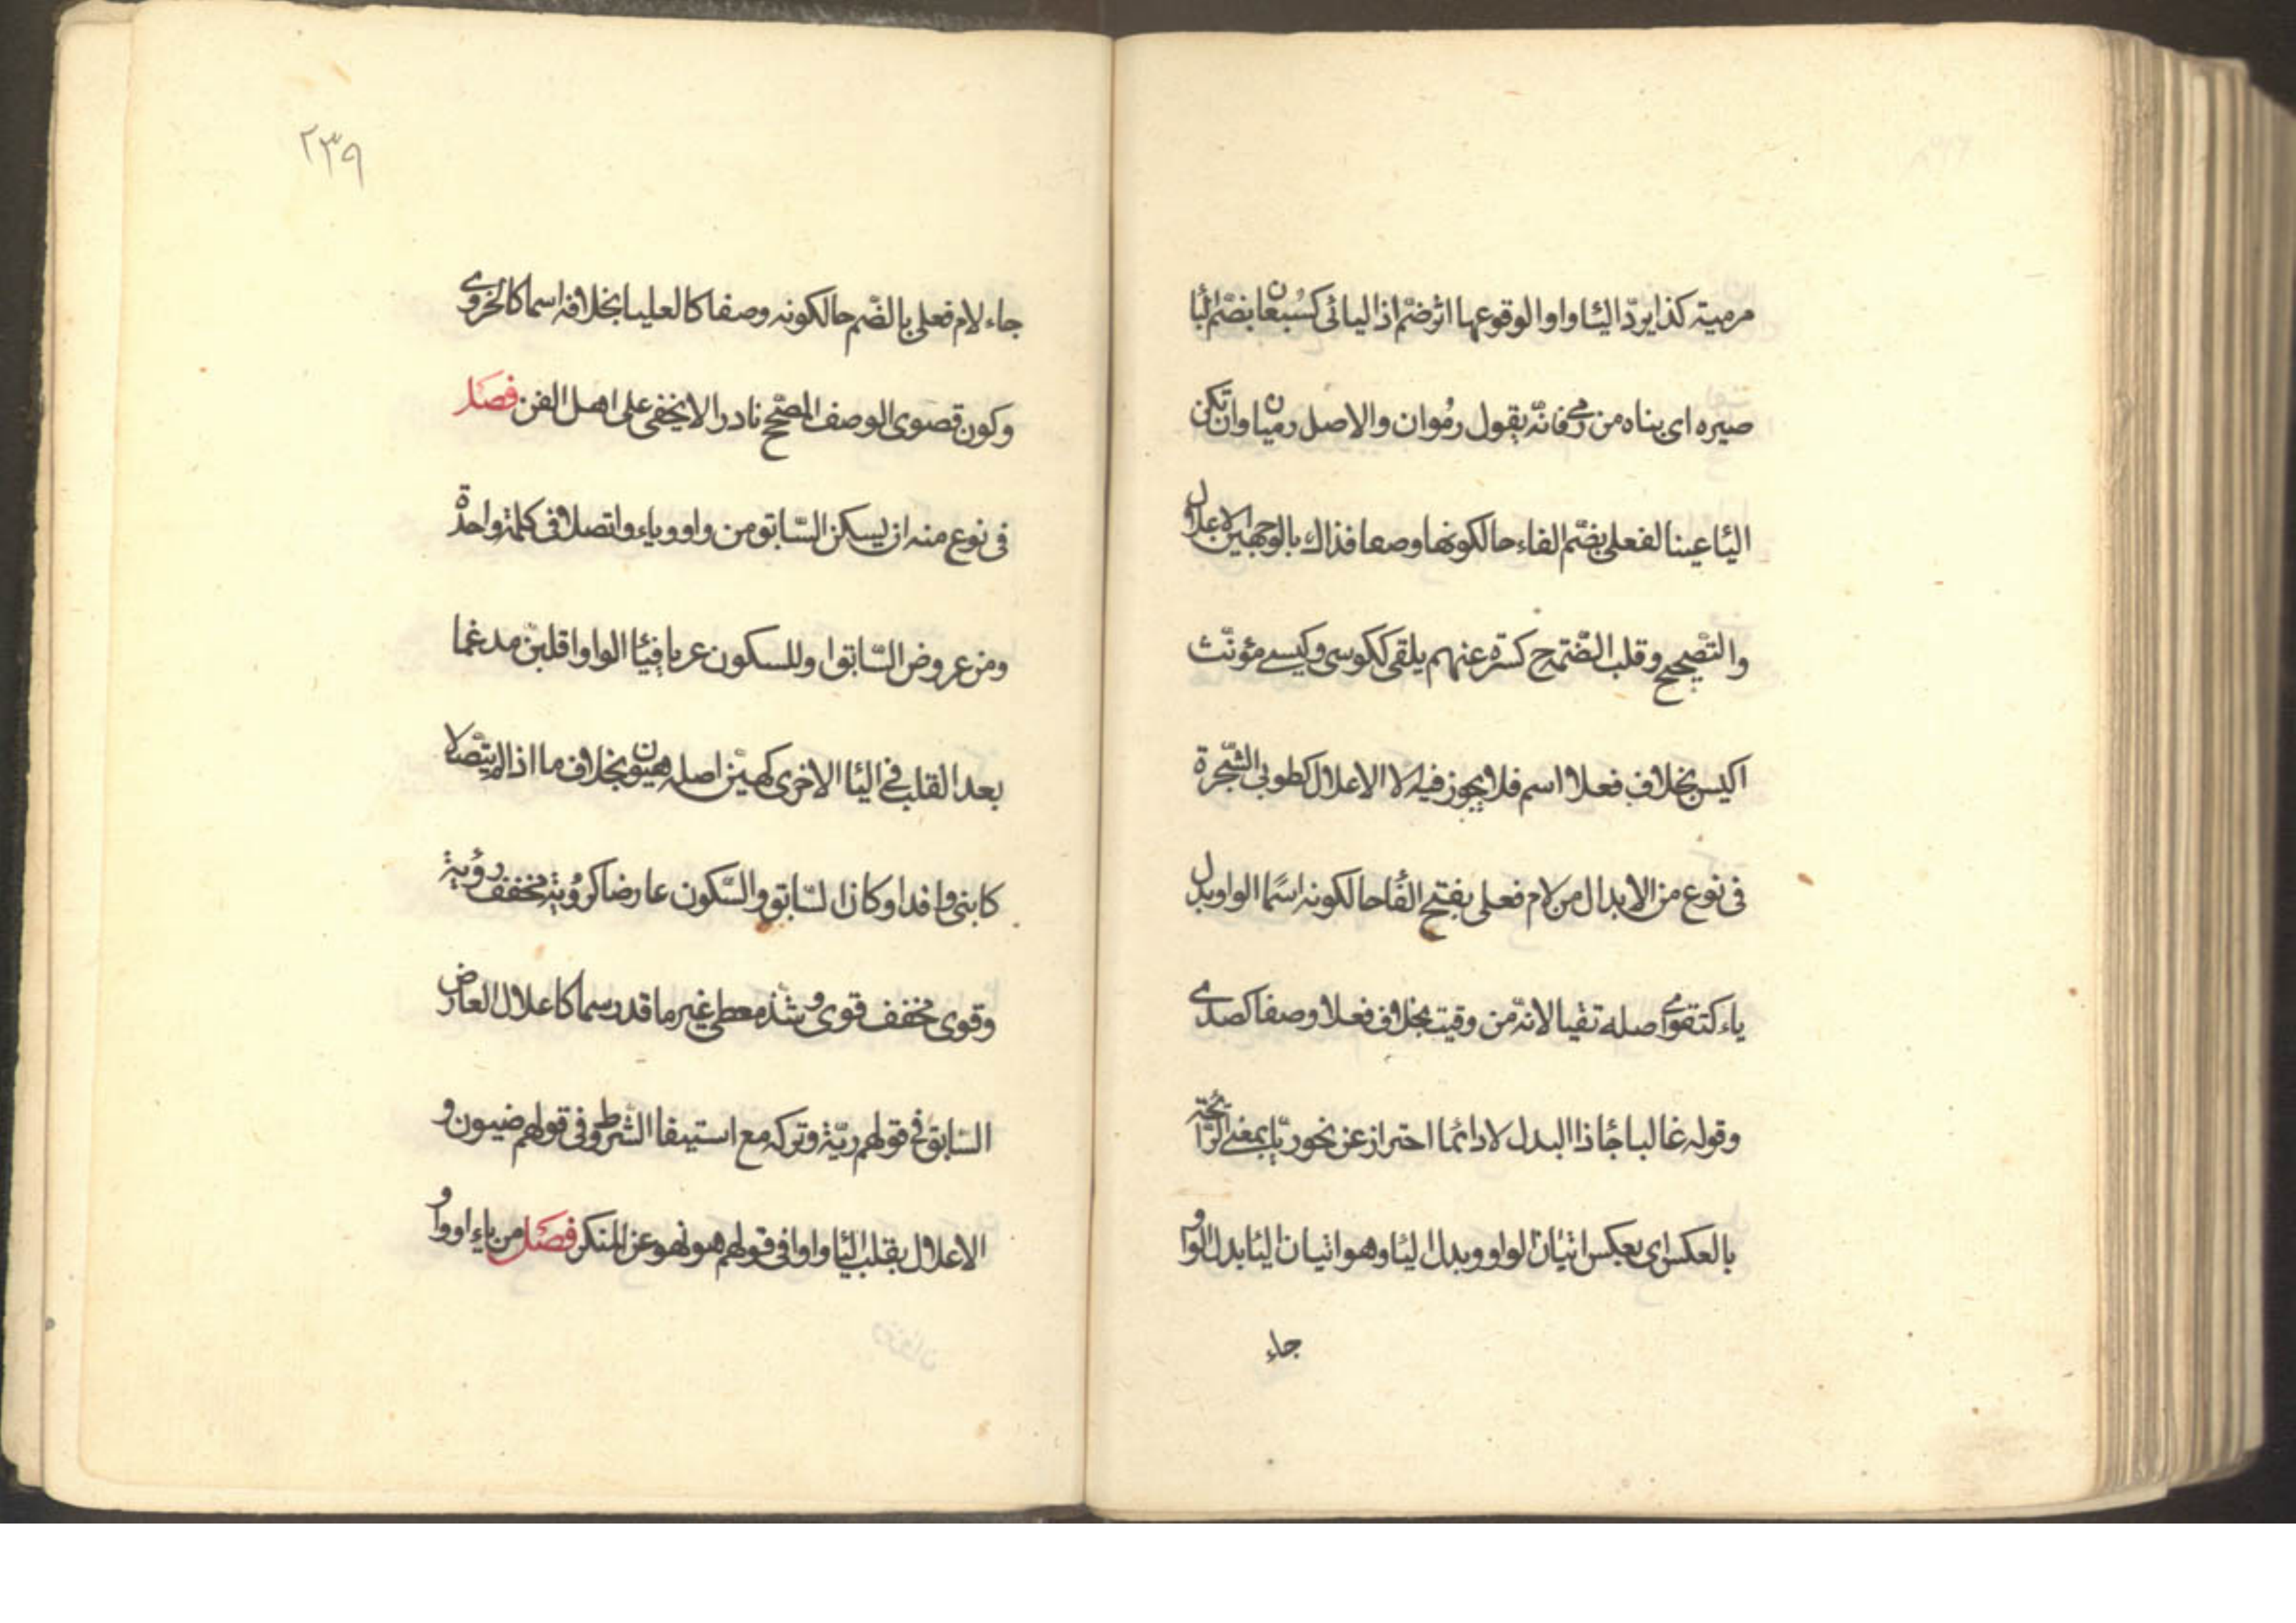 مرمية كذا يردّ اليا واوا لوقوعها اثر ضم اذ اليائى كسبعان بضم البا
صيره اى بناه من رمى فانّه يقول رمُوان والاصل رميان وان تكن
اليا عينا لفعلى بضّم الفاء حالكونها وصفا فذاك بالوجهين الاعلال
والتّصحيح وقلب الضّمة ح كسرة عنهم يلقى ككوسى وكيسى مؤنّث
اكيس بخلاف فعلا اسم فلا يجوز فيه الا الاعلال كطوبى الشّجرة
فى نوع من الابدال من لام فعلى بفتح الفا حالكونه اسمًا الواو بدل
ياء كتقوى اصله تقيا لانّه من وقيت بخلاف فعلا وصفا كصدى
وقوله غالبا جا ذا البدل لا دائما احتراز عن نحو ريّا بمعنى الرّائحة
بالعكس اى بعكس اتيان الواو وبدل اليا وهو اتيان اليا بدل الواو
جاء
٢٣٩
جاء لام فعلى بالضّم حالكونه وصفا كالعليا بخلافه اسما كالخروى
وكون قصوى الوصف المصحّح نادرا لا يخفى على اهل الفن فصل
فى نوع منه ان يسكن السّابق من واو وياء واتصلا فى كلمة واحدة
ومن عروض السّابق او للسكون عريا فيا الواو اقلبنّ مدغما
بعد القلب فى اليا الاخرى كهيّن اصله هيون بخلاف ما اذا لم يتّصلا
كابنى وافد او كان السّابق والسّكون عارضا كرُوية مخفف رؤية
وقوى مخفف قوى وشذ معطى غير ما قد رسما كاعلال العارض
السّابق فى قولهم ريّة وتركه مع استيفا الشرط وفى قولهم ضيون و
الاعلال بقلب اليا واوا فى قولهم هو نهو عن المنكر فصل من ياء او واو